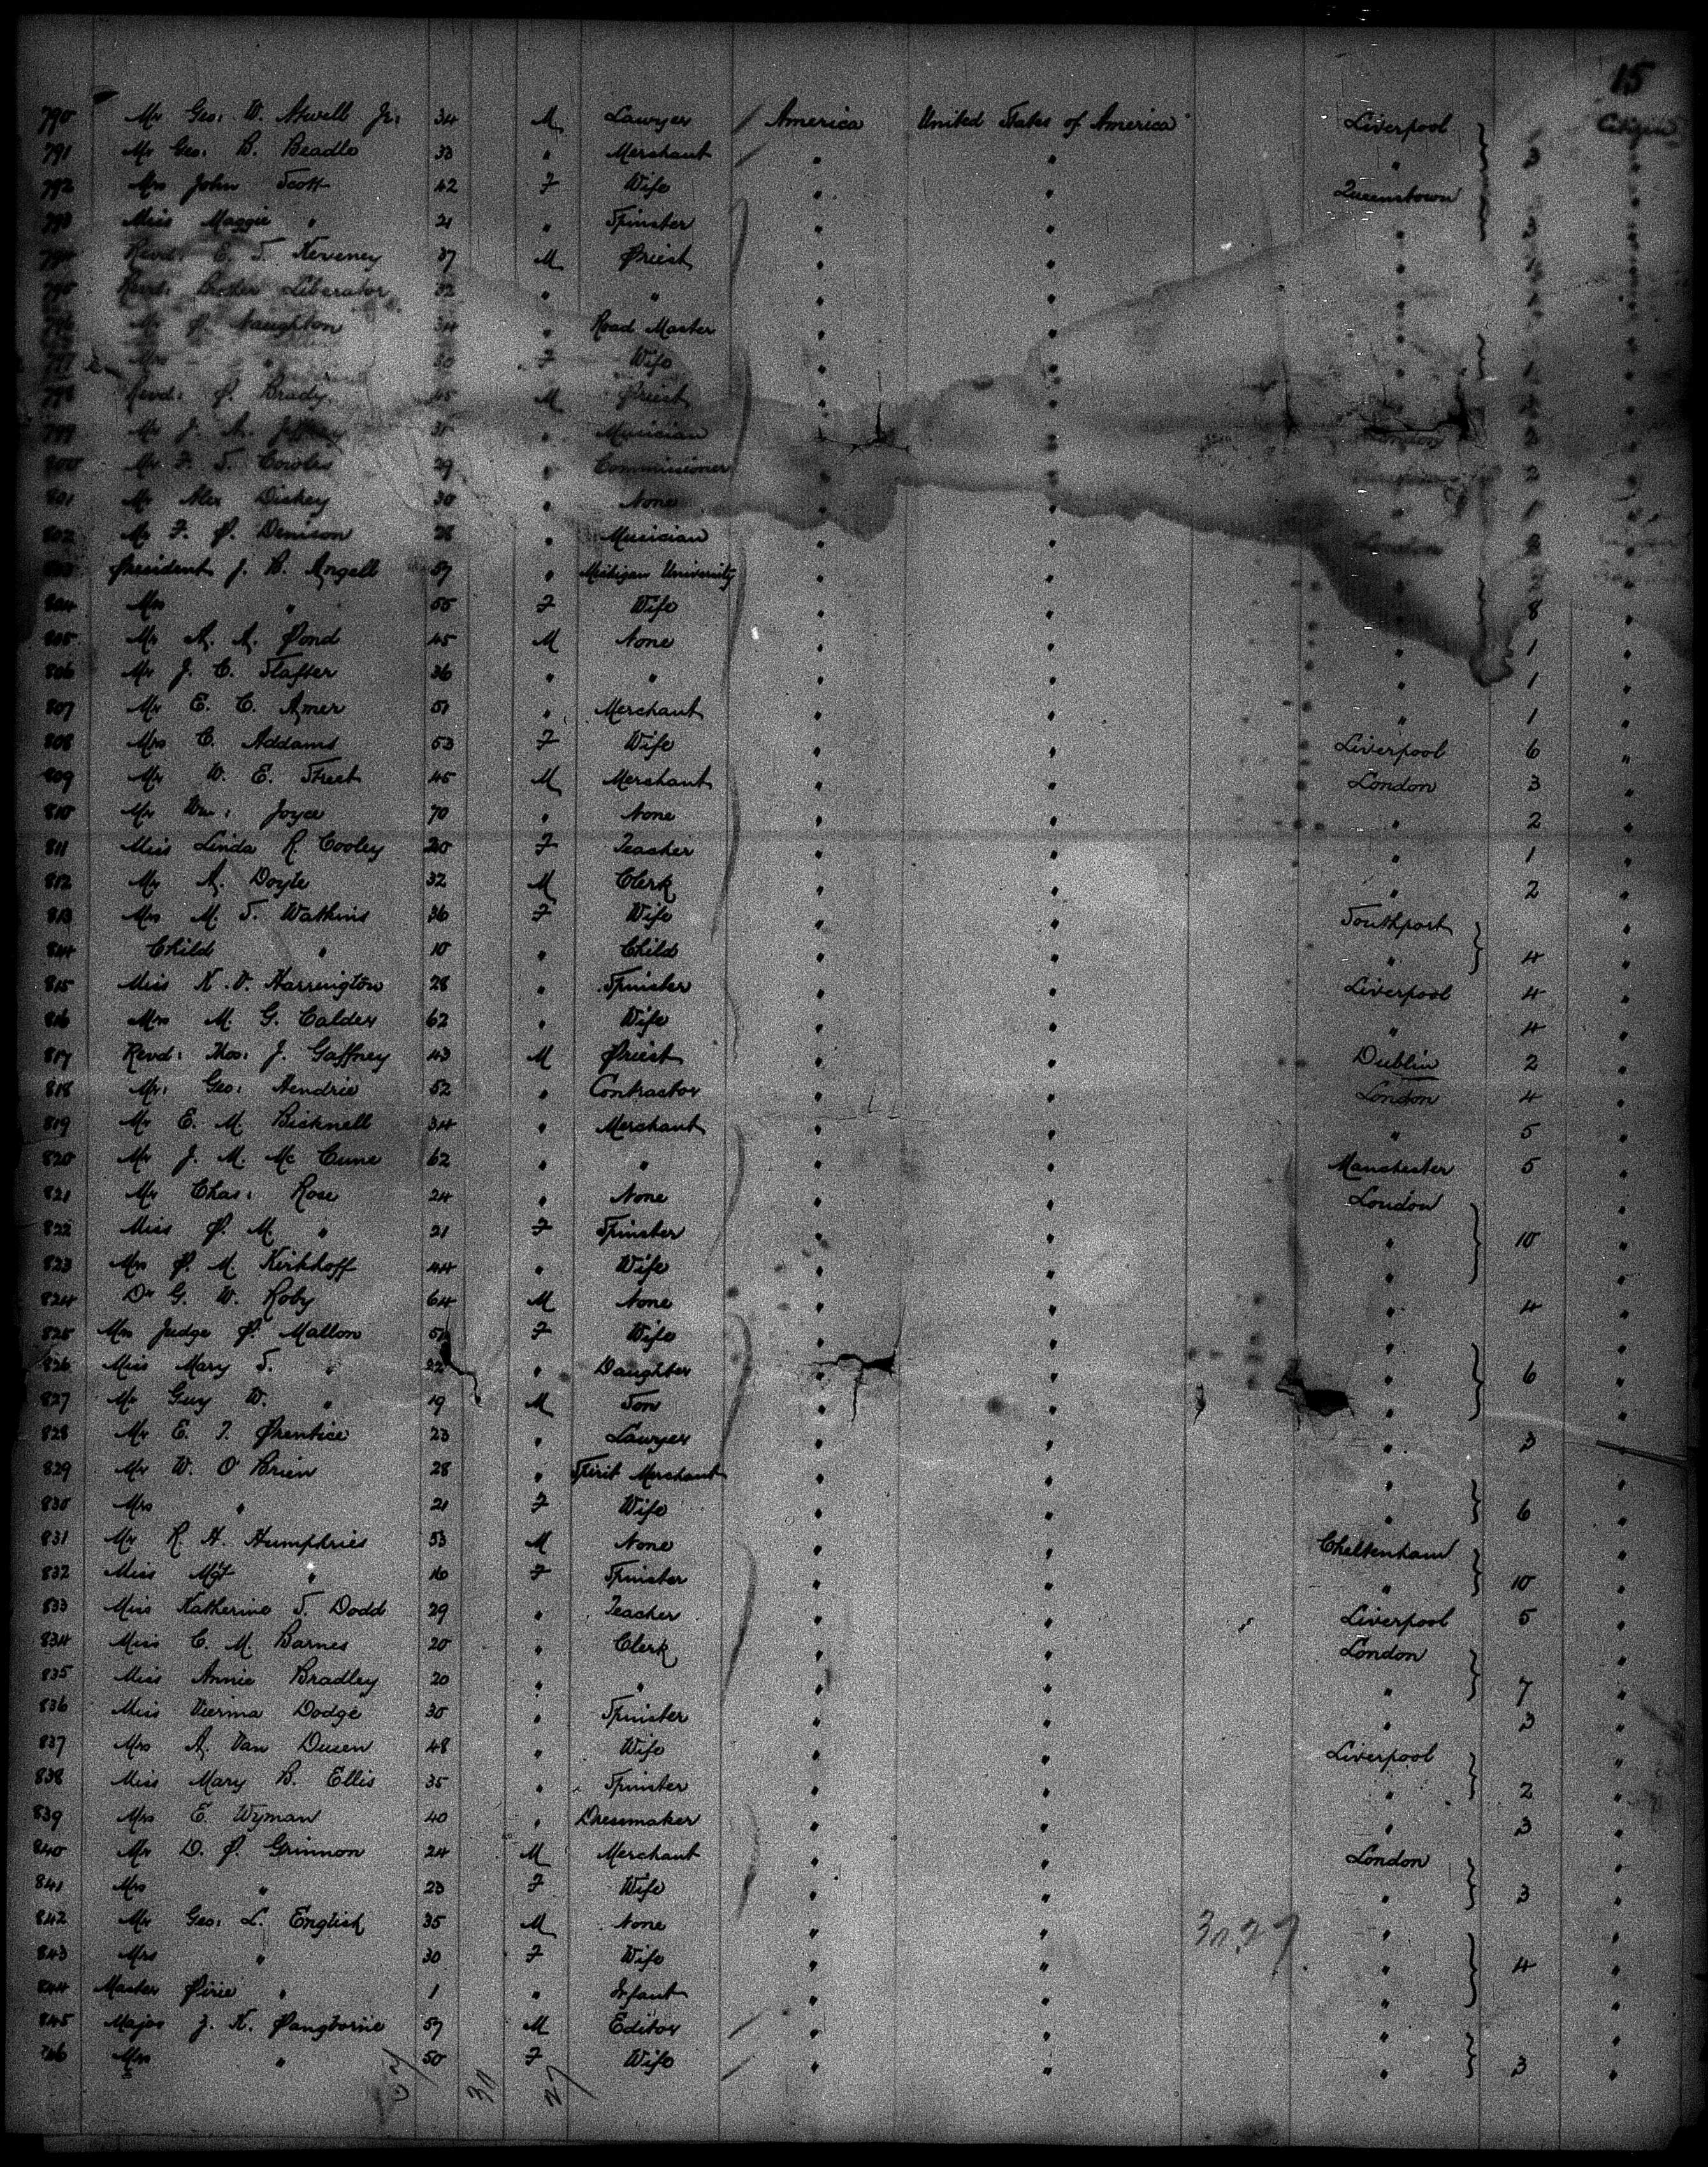 15
790 Mr Geo: W. Atwell Jr: 34 M Lawyer America United States of America Liverpool Citizen
791 Mr Geo: B. Beadle 33 " Merchant " " " 3 "
792 Mrs John Scott 42 F Wife " " Queenstown "
793 Miss Maggie " 21 " Spinster " " " 3 "
794 Revd: E. S. Keveney 37 M Priest " " " 1 "
795 Revd: Liberator 32 " " " " " "
796 Mr P. Naughton 34 " Road Master " " " "
797 Mrs " 30 F Wife " " " 1 "
798 Revd: P. Brady 45 M Priest " " " "
799 Mr J. A. " Musician " " London 2 "
800 Mr F. S. Cowles 29 " Commissioner " " 2 "
801 Mr Alex Dickey 30 " None " " 1 "
802 Mr F. P. Denison 28 " Musician " " London 2 "
803 President J. B. Angell 57 " Michigan University " " " "
804 Mrs " 55 F Wife " " " 8 "
805 Mr A. A. Pond 45 M None " " " 1 "
806 Mr J. C. Slafter 36 " " " " " 1 "
807 Mr E. C. Amer 51 " Merchant " " " 1 "
808 Mrs C. Addams 53 F Wife " " Liverpool 6 "
809 Mr W. E. Street 45 M Merchant " " London 3 "
810 Mr Wm: Joyce 70 " None " " " 2 "
811 Miss Linda R. Cooley 20 F Teacher " " " 1 "
812 Mr A. Doyle 32 M Clerk " " " 2 "
813 Mrs M. S. Watkins 36 F Wife " " Southport "
814 Child " 10 " Child " " " 4 "
815 Miss K. V. Harrington 28 " Spinster " " Liverpool 4 "
816 Mrs M. G. Calder 62 " Wife " " " 4 "
817 Revd: Thos: J. Gaffney 43 M Priest " " Dublin 2 "
818 Mr: Geo: Hendrie 52 " Contractor " " London 4 "
819 Mr E. M. Bicknell 34 " Merchant " " " 5 "
820 Mr J. M. Mc Cune 62 " " " " Manchester 5 "
821 Mr Chas: Rose 24 " None " " London "
822 Miss P. M. " 21 F Spinster " " " 10 "
823 Mrs P. M. Kirkhoff 44 " Wife " " " "
824 Dr G. W. Roby 64 M None " " " 4 "
825 Mrs Judge P. Mallon 51 F Wife " " "
826 Miss Mary S. " 22 " Daughter " " " 6 "
827 Mr Guy W. " 19 M Son " " " "
828 Mr E. T. Prentice 23 " Lawyer " " " 3 "
829 Mr W. O'Brien 28 " Spirit Merchant " " " "
830 Mrs " 21 F Wife " " " 6 "
831 Mr R. H. Humphries 53 M None " " Cheltenham "
832 Miss Mgt " 16 F Spinster " " " 10 "
833 Miss Katherine S. Dodd 29 " Teacher " " Liverpool 5 "
834 Miss C. M. Barnes 20 " Clerk " " London "
835 Miss Annie Bradley 20 " " " " " 7 "
836 Miss Vierma Dodge 30 " Spinster " " " 3 "
837 Mrs A. Van Dusen 48 " Wife " " Liverpool "
838 Miss Mary B. Ellis 35 " Spinster " " " 2 "
839 Mrs E. Wyman 40 " Dressmaker " " " 3 "
840 Mr D. P. Grinnon 24 M Merchant " " London "
841 Mrs " 23 F Wife " " " 3 "
842 Mr Geo: L. English 35 M None " " " "
843 Mrs " 30 F Wife " " " 4 "
844 Master Pirie " 1 " Infant " " " "
845 Major Z. K. Pangborne 57 M Editor " " " "
846 Mrs " 50 F Wife " " " 3 "
30 27